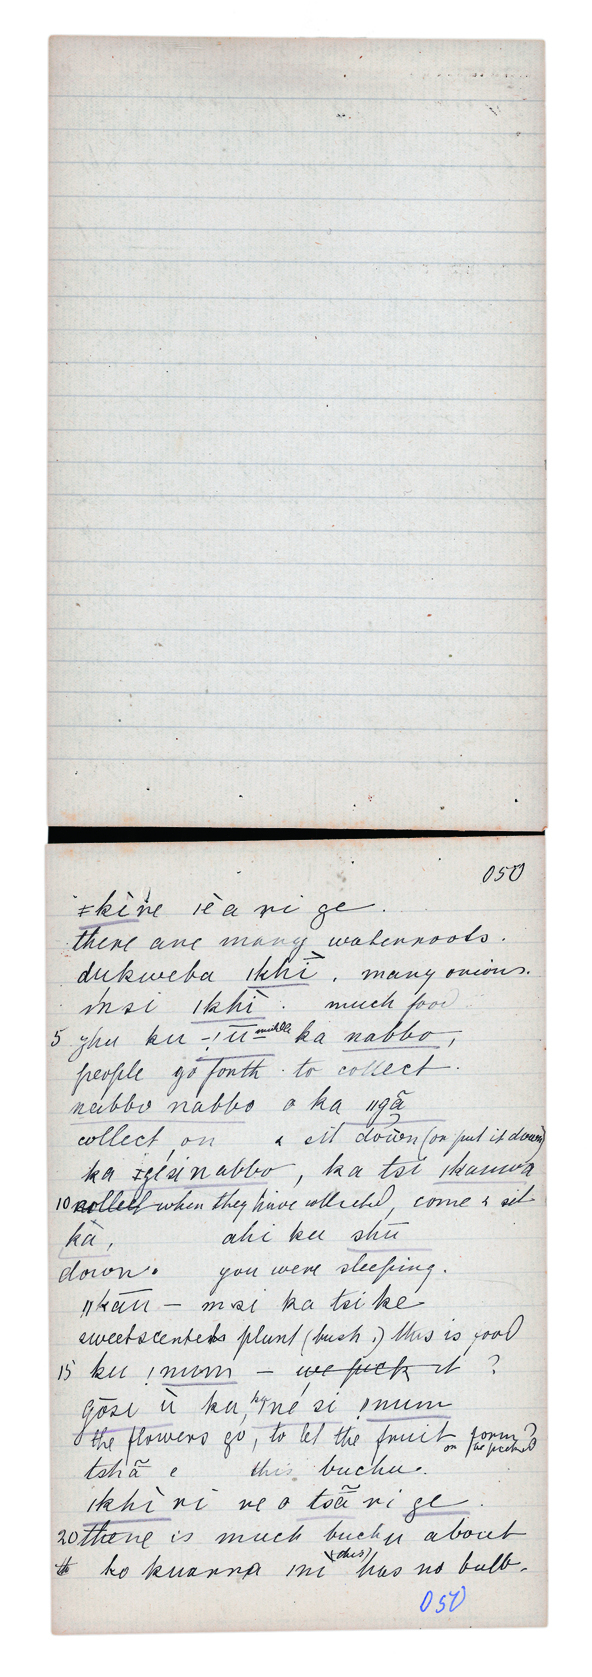 050
ǂkine ıèa ri ge.
there are many waterroots.
dukweba ıkhì. many onions.
msi ıkhì. much food
5 zhu ku -!ū- ka nabbo,
people go forth to collect.
nabbo nabbo o ka ııgã
collect, on & sit down (or put it down)
ka ǂgisi nabbo, ka tsi ıkauwa
10 collect when they have collected, come & sit
kà, ahi ku shū
down. you were sleeping.
ııkāu – msi ka tsi ke
sweetscented plant (bush) this is food
15 ku !num – we pick it ?
gōsi ū ku, né si !num
the flowers go, to let the fruit form?
tshã e this buchu.
ıkhì ri ne o tsã ri ge.
20 there is much buchu about
ko kuanna ıni (this) has no bulb.
050